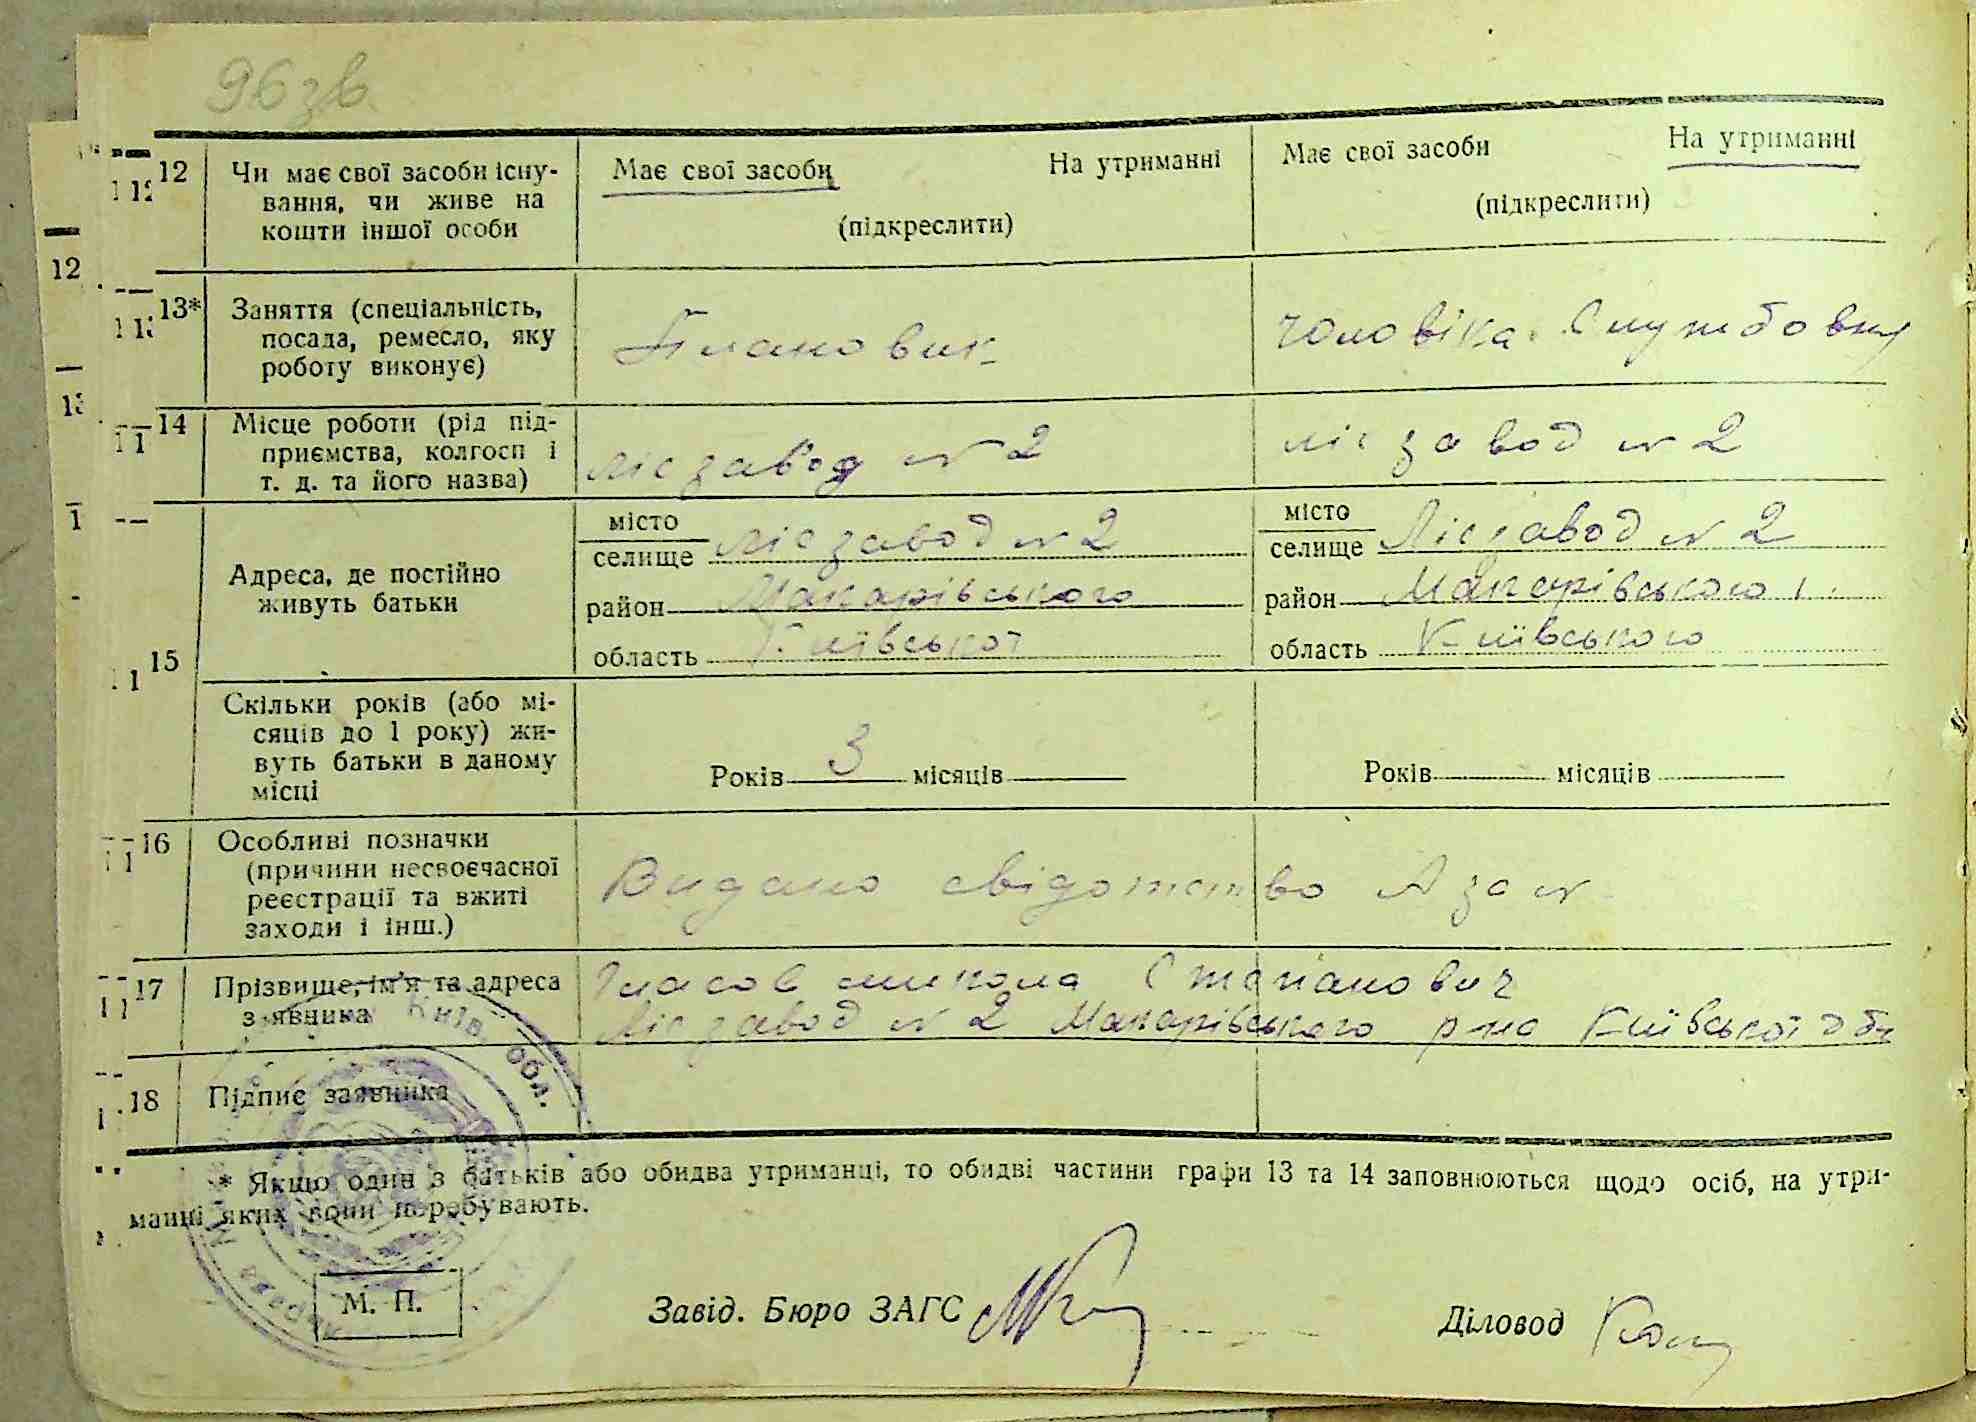 96 зв.
12 Чи має свої засоби існу-
вання, чи живе на
кошти іншої особи
Має свої засоби На утриманні
(підкреслити)
Має свої засоби На утриманні
(підкреслити)
13* Заняття (спеціальність,
посада, ремесло, яку
роботу виконує)
Плановик
чоловіка. Службовец
14 Місце роботи (рід під-
приємства, колгосп і
т. д. та його назва)
лісзавод № 2
лісзавод № 2
15 Адреса, де постійно
живуть батьки
місто
селище лісзавод № 2
район Макарівського
область Київської
місто
селище Лісзавод № 2
район Макарівського
область Київського
Скільки років (або мі-
сяців до 1 року) жи-
вуть батьки в даному
місці
Років 3 місяців
Років місяців
16 Особливі позначки
(причини несвоєчасної
реєстрації та вжиті
заходи і інш.)
Видано свідотство А за №
17 Прізвище, ім'я та адреса
заявника
Власов микола Степанович
Лісзавод № 2 Макарівського р-на Київської обл
18 Підпис заявника
Київ. обл.
* Якщо один з батьків або обидва утриманці, то обидві частини графи 13 та 14 заповнюються щодо осіб, на утри-
манці яких вони перебувають.
М. П.
Завід. Бюро ЗАГС
Діловод